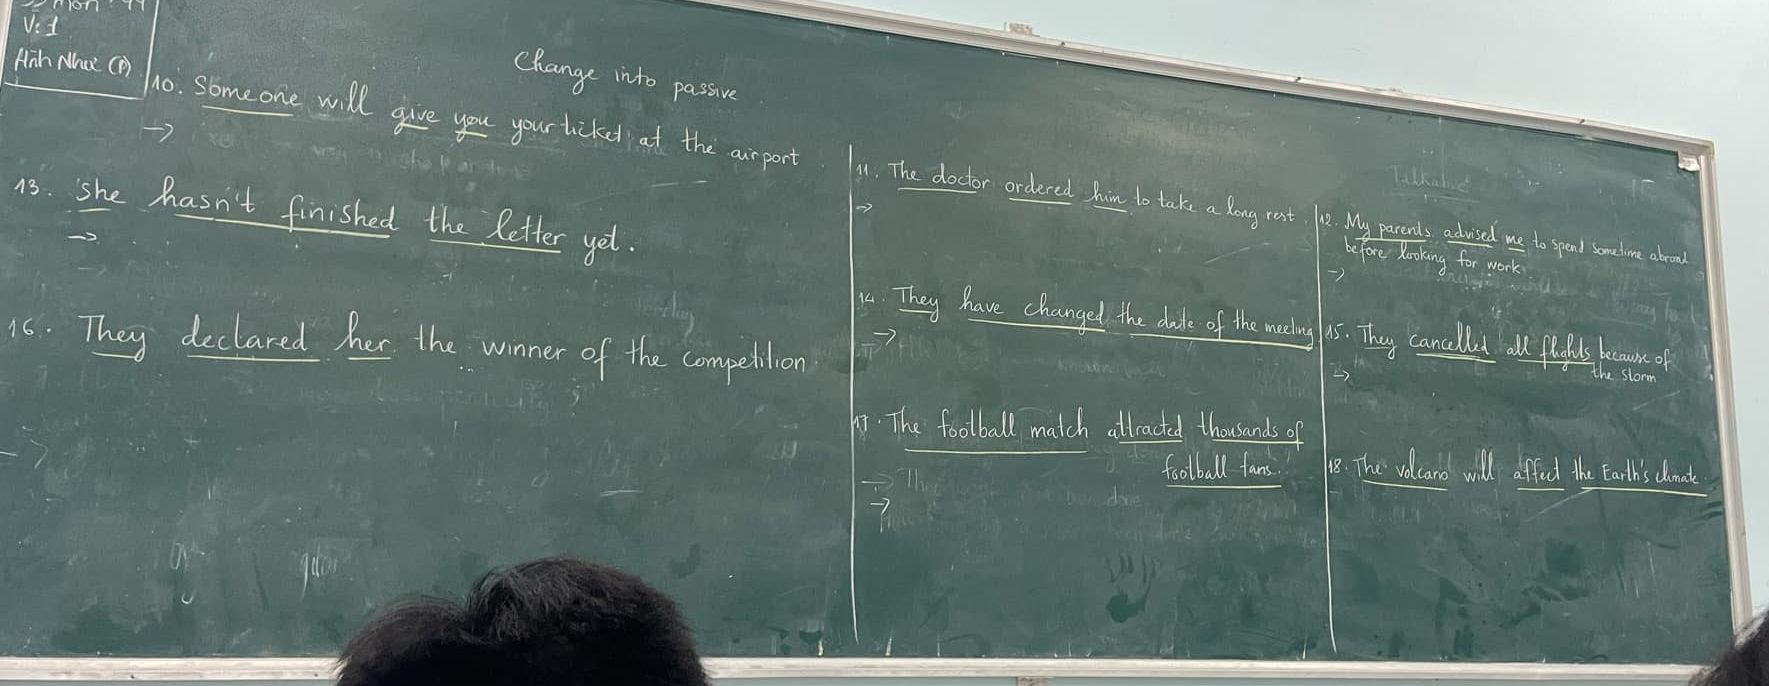 V: 1
Change into passive
10. Someone will give you your ticket at the airport
→
13. She hasn't finished the letter yet.
→
16. They declared her the winner of the competition
→
11. The doctor ordered him to take a long rest.
→
14. They have changed the date of the meeting
→
17. The football match attracted thousands of
football fans.
→
→
12. My parents advised me to spend sometime abroad
before looking for work
→
15. They cancelled all flights because of
the storm
→
18. The volcano will affect the Earth's climate